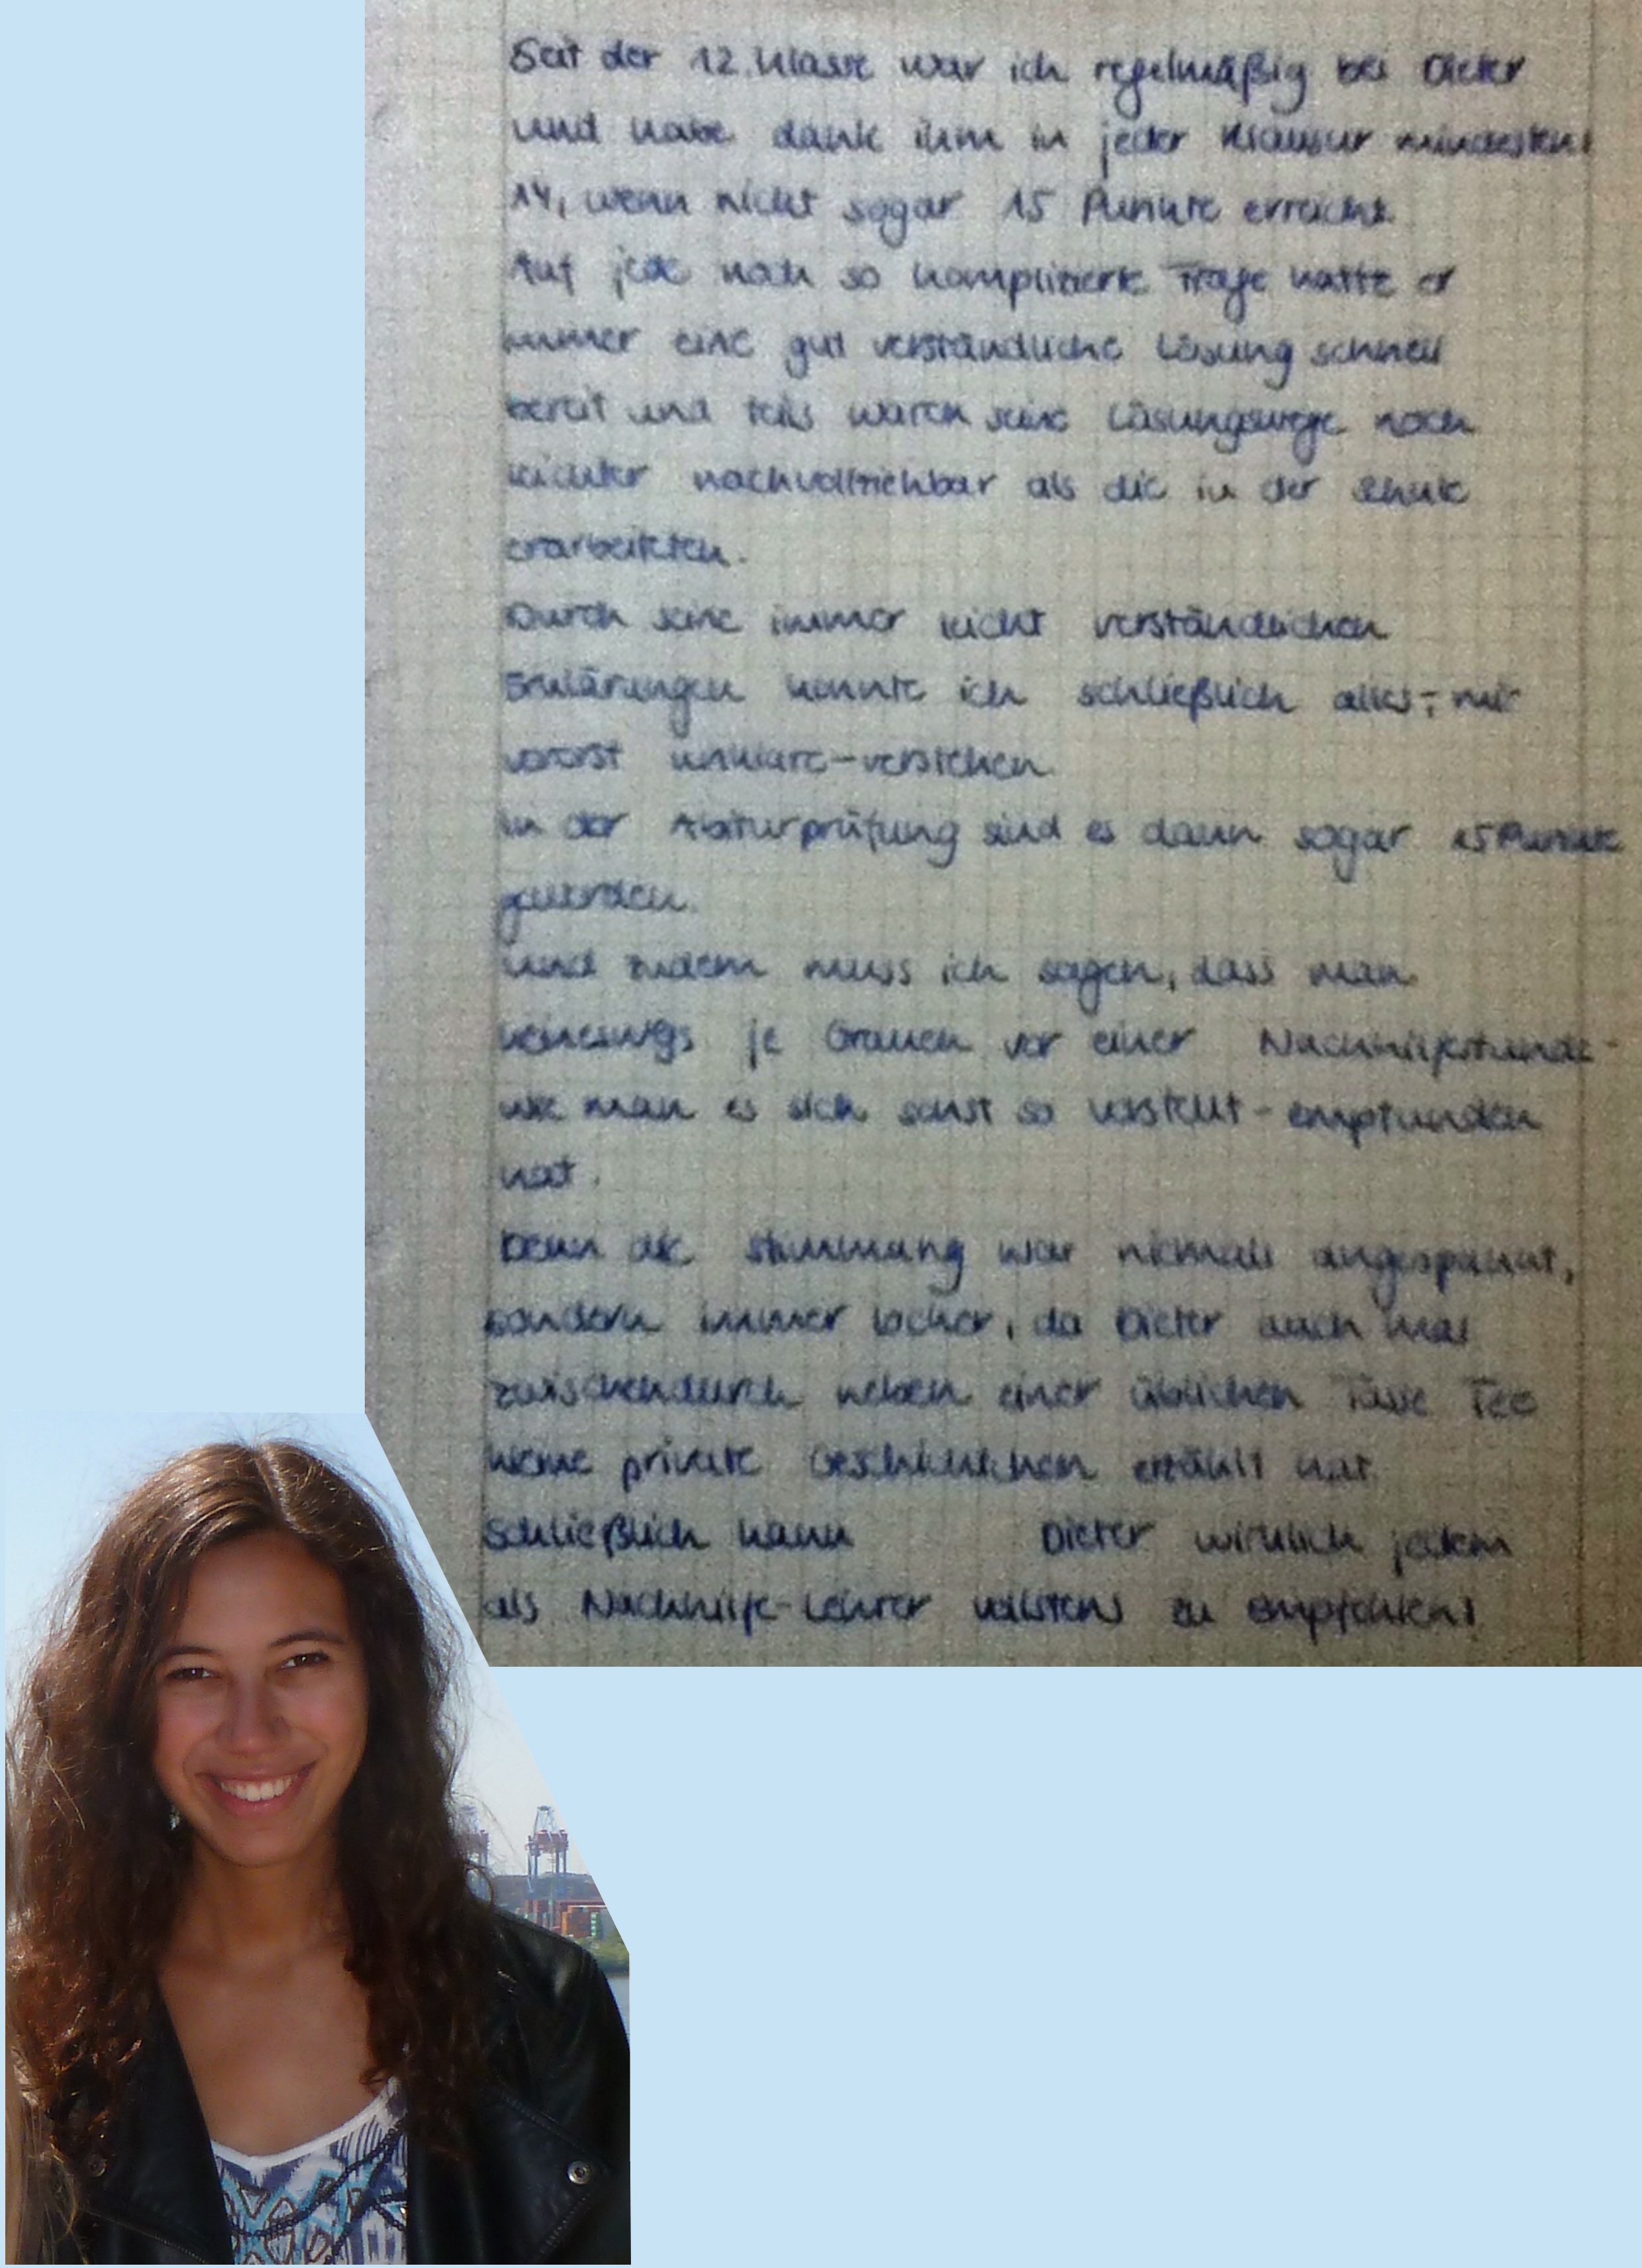 Seit der 12. Klasse war ich regelmäßig bei Dieter
und habe dank ihm in jeder Klausur mindestens
14, wenn nicht sogar 15 Punkte erreicht.
Auf jede noch so komplizierte Frage hatte er
immer eine gut verständliche Lösung schnell
bereit und teils waren seine Lösungswege noch
leichter nachvollziehbar als die in der Schule
erarbeiteten.
Durch seine immer leicht verständlichen
Erklärungen konnte ich schließlich alles - mir
vorerst unklare - verstehen.
In der Abiturprüfung sind es dann sogar 15 Punkte
geworden.
Und zudem muss ich sagen, dass man
keineswegs je Grauen vor einer Nachhilfestunde -
wie man es sich sonst so vorstellt - empfunden
hat.
Denn die Stimmung war niemals angespannt,
sondern immer locker, da Dieter auch mal
zwischendurch neben einer üblichen Tasse Tee
kleine private Geschichtchen erzählt hat.
Schließlich kann Dieter wirklich jedem
als Nachhilfe-Lehrer vollstens zu empfohlen!